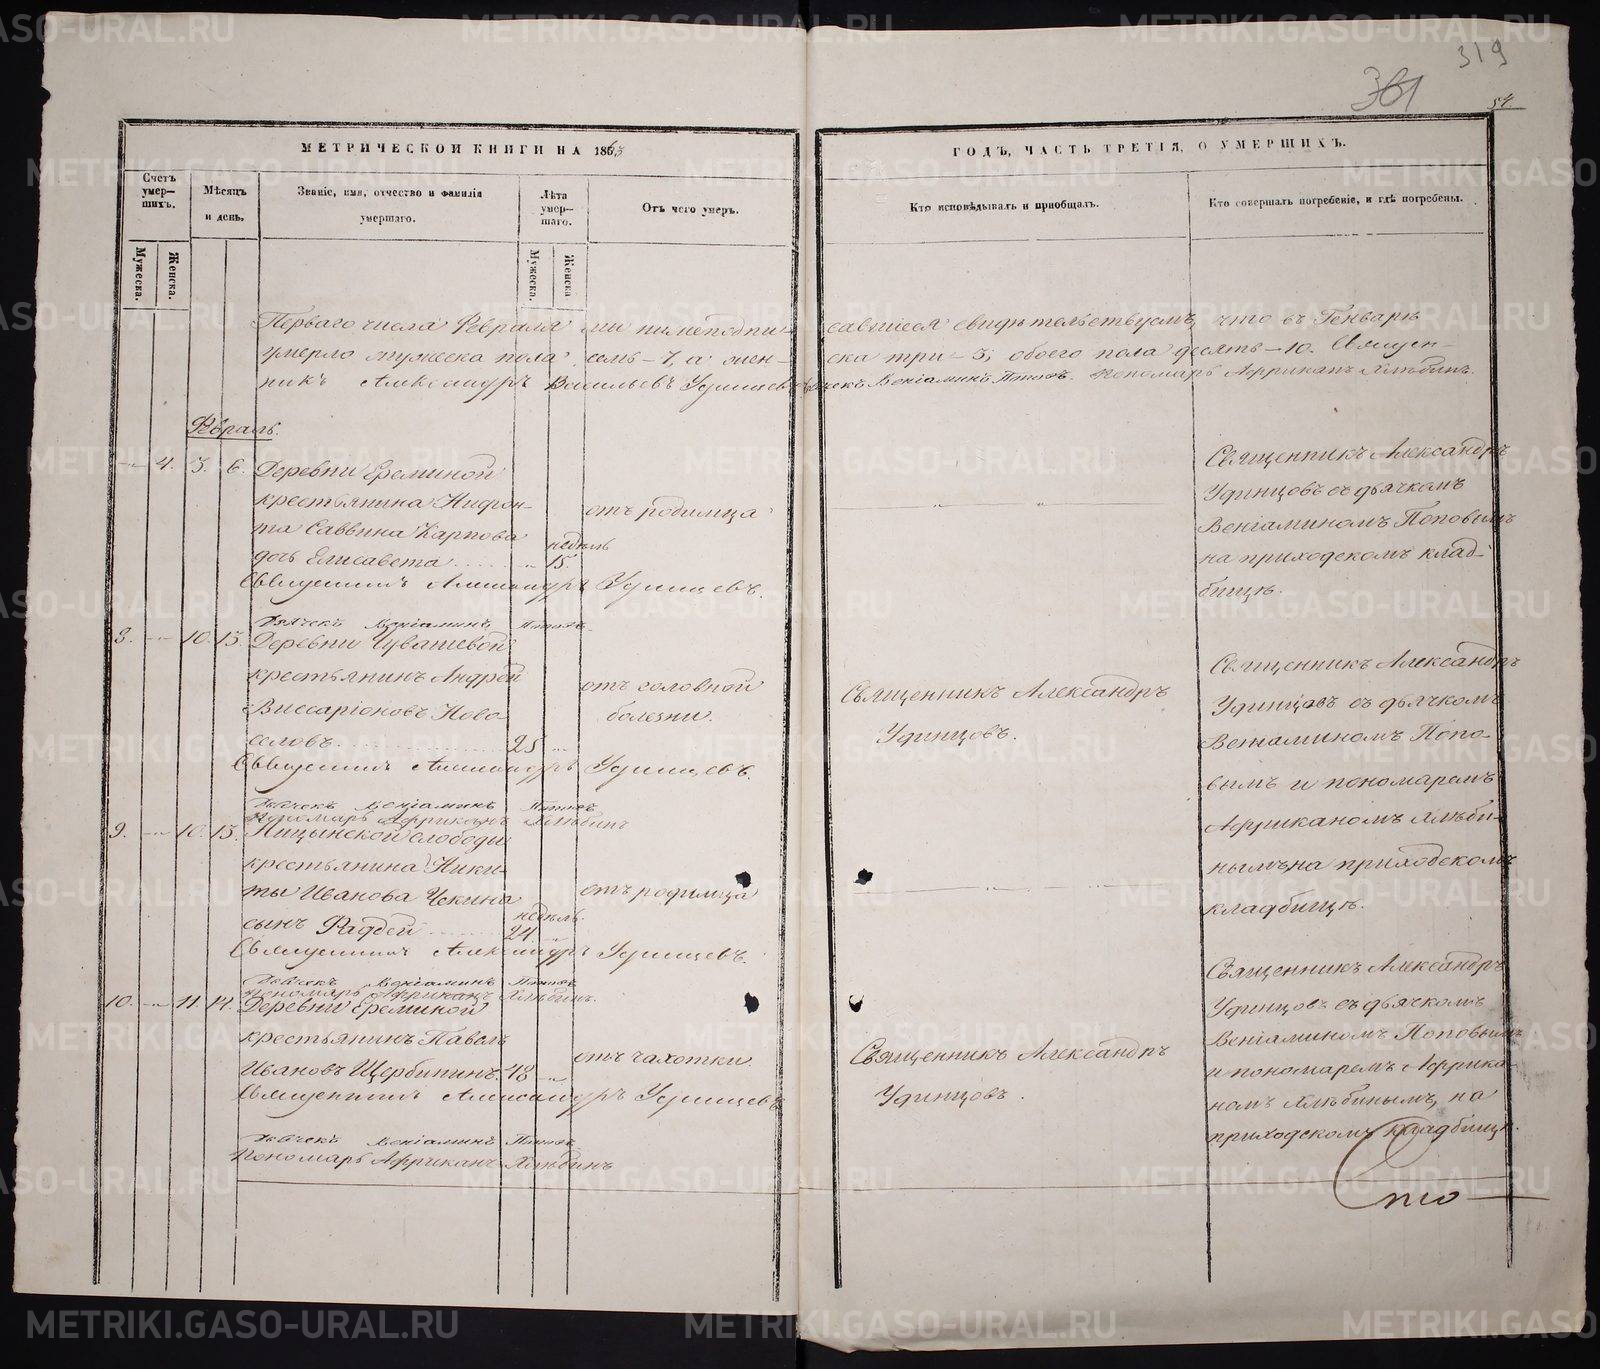 319
361
54
МЕТРИЧЕСКОЙ КНИГИ НА 1863
ГОДЪ, ЧАСТЬ ТРЕТІЯ, О УМЕРШИХЪ.
Счетъ умер-шихъ.
Мужеска.
Женска.
Мѣсяцъ и день.
Званіе, имя, отчество и фамилія умершаго.
Лѣта умер-шаго.
Мужеска.
Женска
Отъ чего умеръ.
Кто исповѣдывалъ и пріобщалъ.
Кто совершалъ погребеніе, и гдѣ погребены.
Перваго числа Февраля мы нижеподпи- савшіеся свидѣтельствуемъ, что въ Генварѣ
умерло мужеска пола семь - 7, а жен- ска три - 3; обоего пола десять - 10. Священ-
никъ Александръ Васильевъ Удинцевъ Дьячекъ Веніаминъ Поповъ. Пономарь Африканъ Хлѣбинъ.
Февраль.
4. 3. 6. Деревни Ереминой
крестьянина Нифон-
та Саввина Карпова
дочь Елисавета
недѣль
15.
отъ родимца
Священникъ Александръ
Удинцовъ съ дьячкомъ
Веніаминомъ Поповымъ
на приходскомъ клад-
бищѣ.
Священникъ Александръ Удинцевъ.
Дьячекъ Веніаминъ Поповъ.
8. 10. 13. Деревни Чувашевой
крестьянинъ Андрей
Виссаріоновъ Ново-
селовъ. 25
отъ головной
болезни.
Священникъ Александръ
Удинцовъ.
Священникъ Александръ
Удинцовъ съ дьячкомъ
Веніаминомъ Попо-
вымъ и пономаремъ
Африканомъ Хлѣби-
нымъ на приходскомъ
кладбищѣ.
Священникъ Александръ Удинцевъ.
Дьячекъ Веніаминъ Поповъ
Пономарь Африканъ Хлѣбинъ
9. 10. 13. Ницынской слободы
крестьянина Ники-
ты Иванова Чекина
сынъ Фаддей
недѣль.
24
отъ родимца
Священникъ Александръ Удинцевъ.
Дьячекъ Веніаминъ Поповъ
Пономарь Африканъ Хлѣбинъ.
10. 11. 14. Деревни Ереминой
крестьянинъ Павелъ
Ивановъ Щербининъ. 48
отъ чахотки
Священникъ Александръ
Удинцовъ.
Священникъ Александръ
Удинцовъ съ дьячкомъ
Веніаминомъ Поповымъ
и пономаремъ Африка-
номъ Хлѣбинымъ, на
приходскомъ кладбищѣ.
Священникъ Александръ Удинцевъ
Дьячекъ Веніаминъ Поповъ
Пономарь Африканъ Хлѣбинъ
METRIKI.GASO-URAL.RU